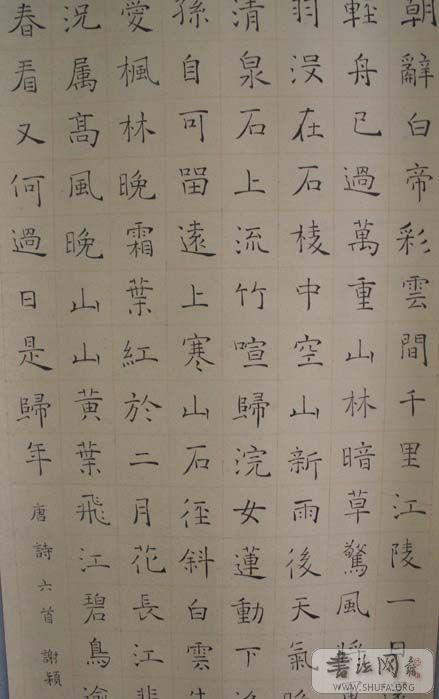 朝辭白帝彩雲間千里江陵一日
輕舟已過萬重山林暗草驚風將
羽没在石棱中空山新雨後天氣
清泉石上流竹喧歸浣女蓮動下
孫自可留遠上寒山石徑斜白雲生
愛楓林晚霜葉紅於二月花長江悲
況属髙風晚山山黃葉飛江碧鳥逾
春看又何過日是歸年
唐詩六首 謝穎
書法网
WWW.SHUFA.ORG